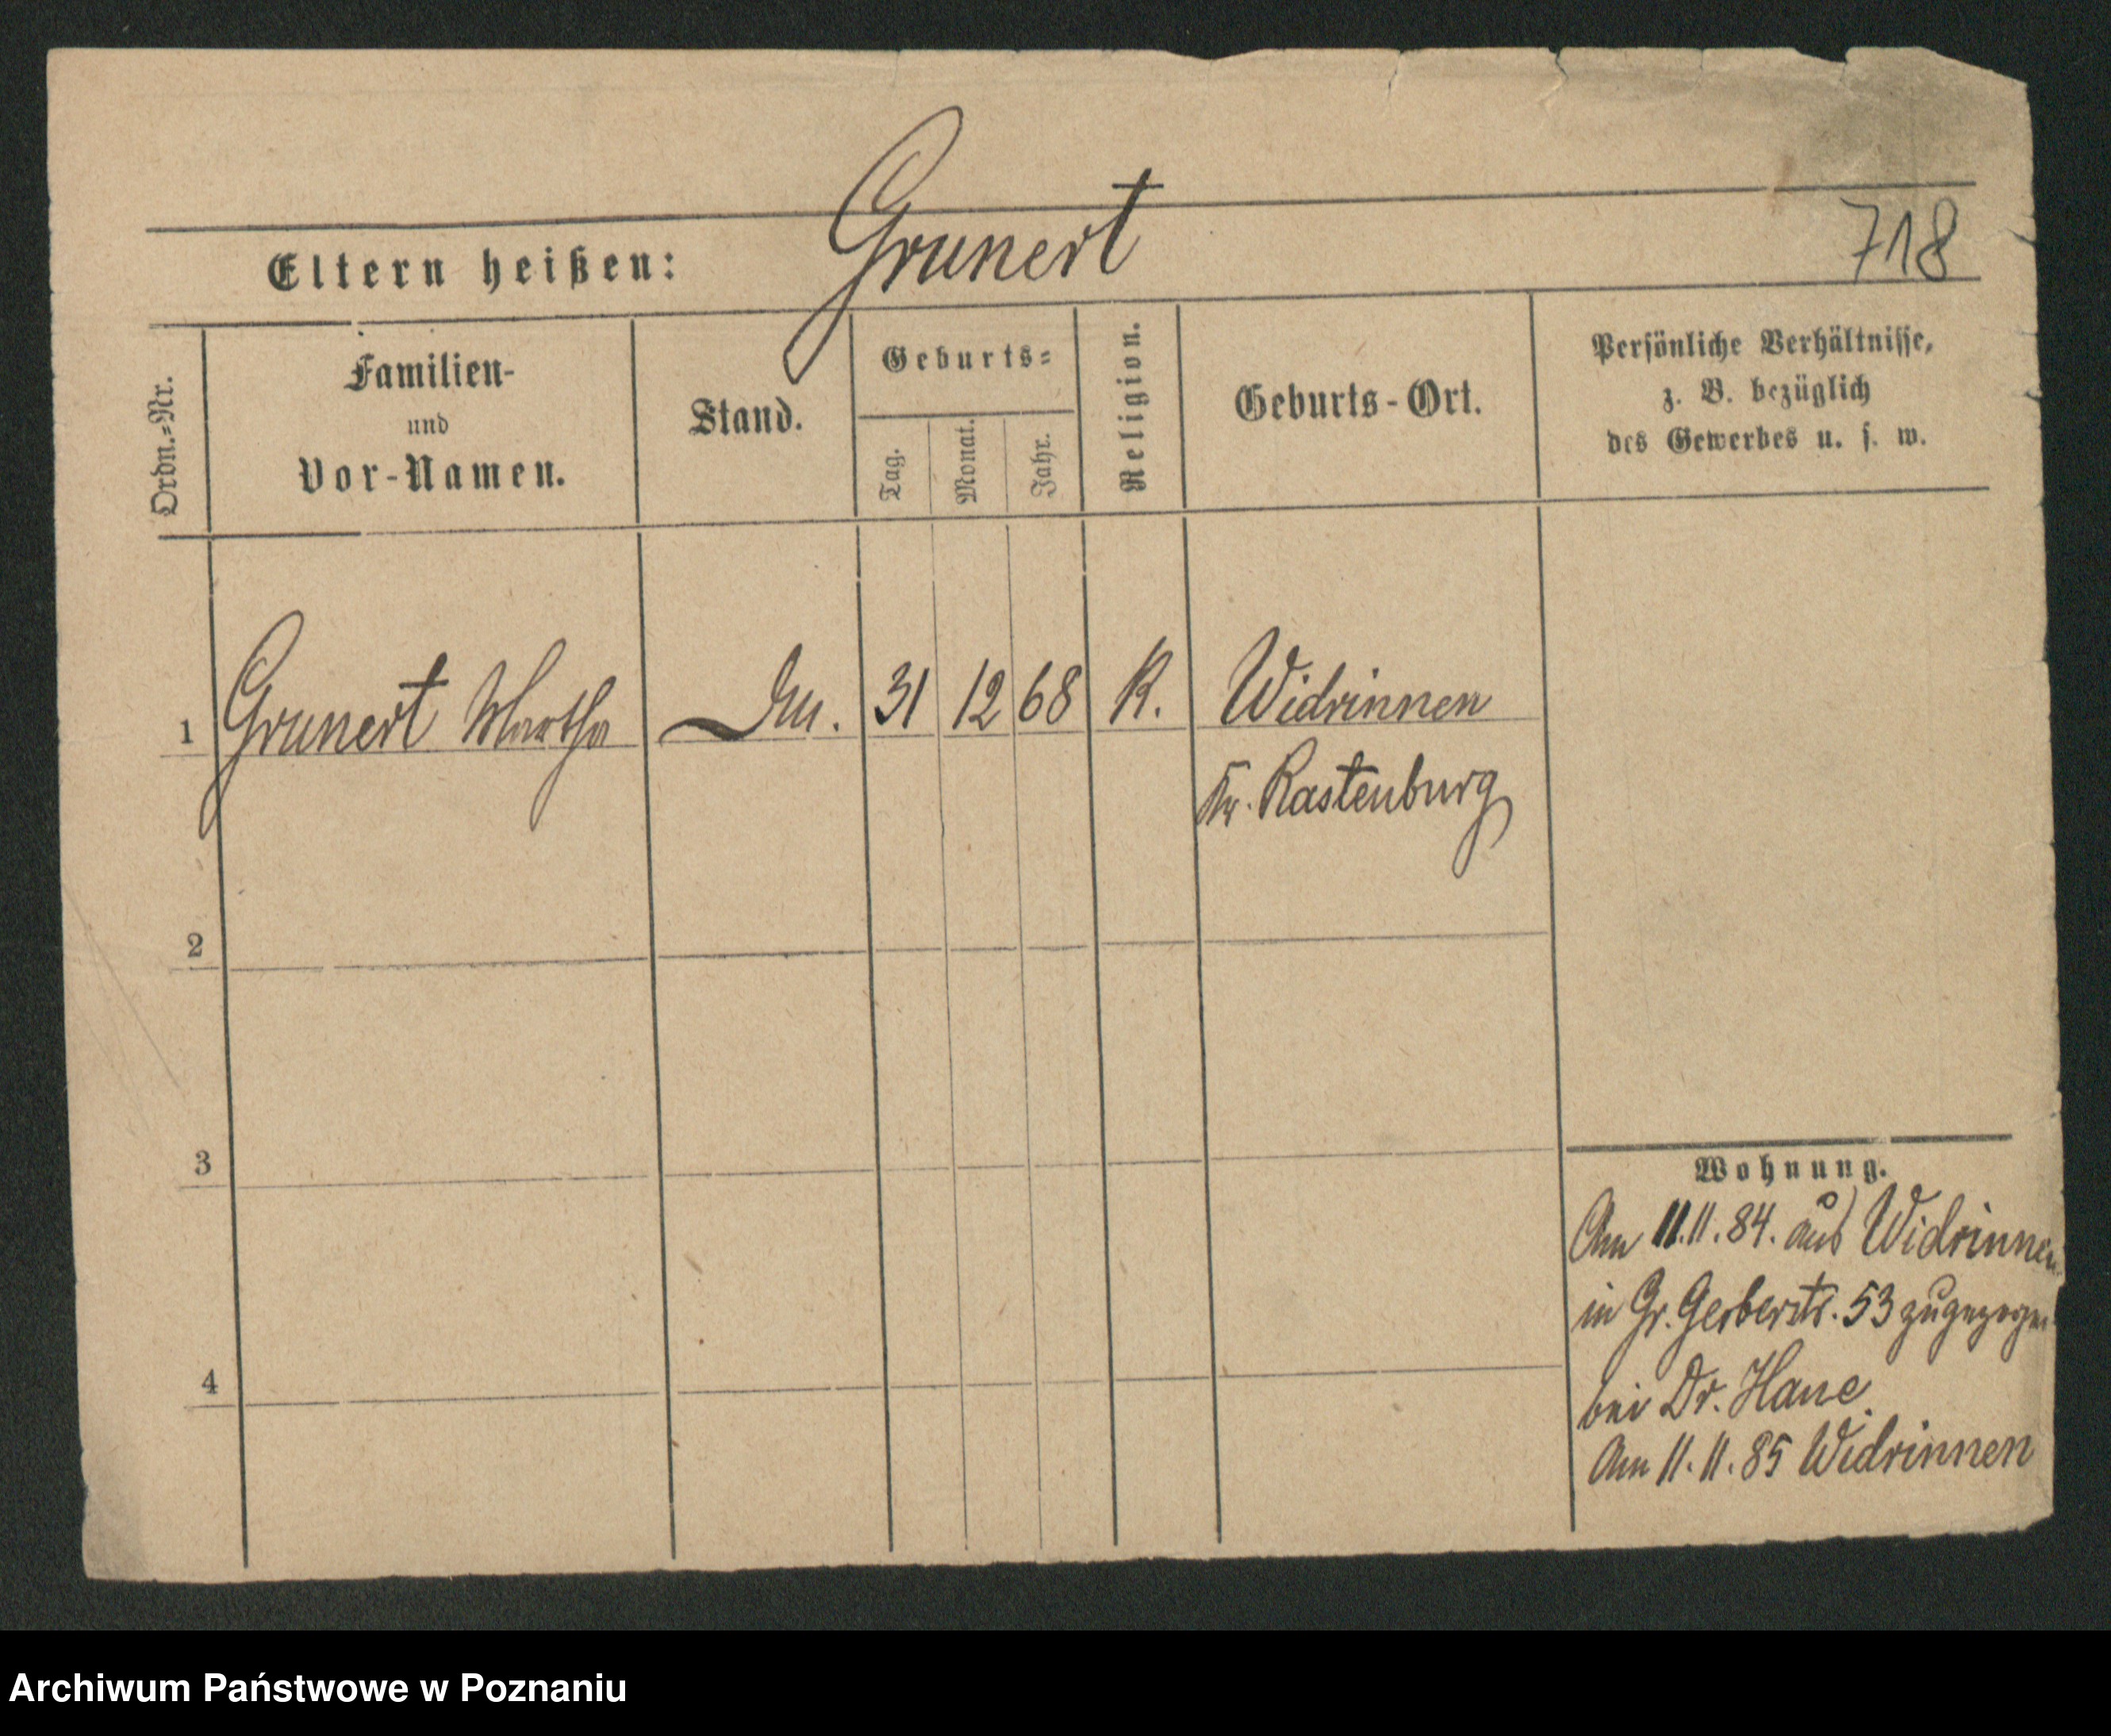 Grunert
718
Eltern heißen:
Ordn.=Nr.
Familien-
und
Vor-Namen.
Stand.
Geburts=
Tag.
Monat.
Jahr.
Religion.
Geburts-Ort.
Persönliche Verhältnisse,
z. B. bezüglich
des Gewerbes u. s. w.
1 Grunert Martha 31 12 68 K. Widrinnen
Kr. Rastenburg
2
3
4
Wohnung.
Am 11.11.84. aus Widrinnen
in Gr. Gerberstr. 53 zugezogen
bei Dr. Hane
Am 11.11.85 Widrinnen
Archiwum Państwowe w Poznaniu